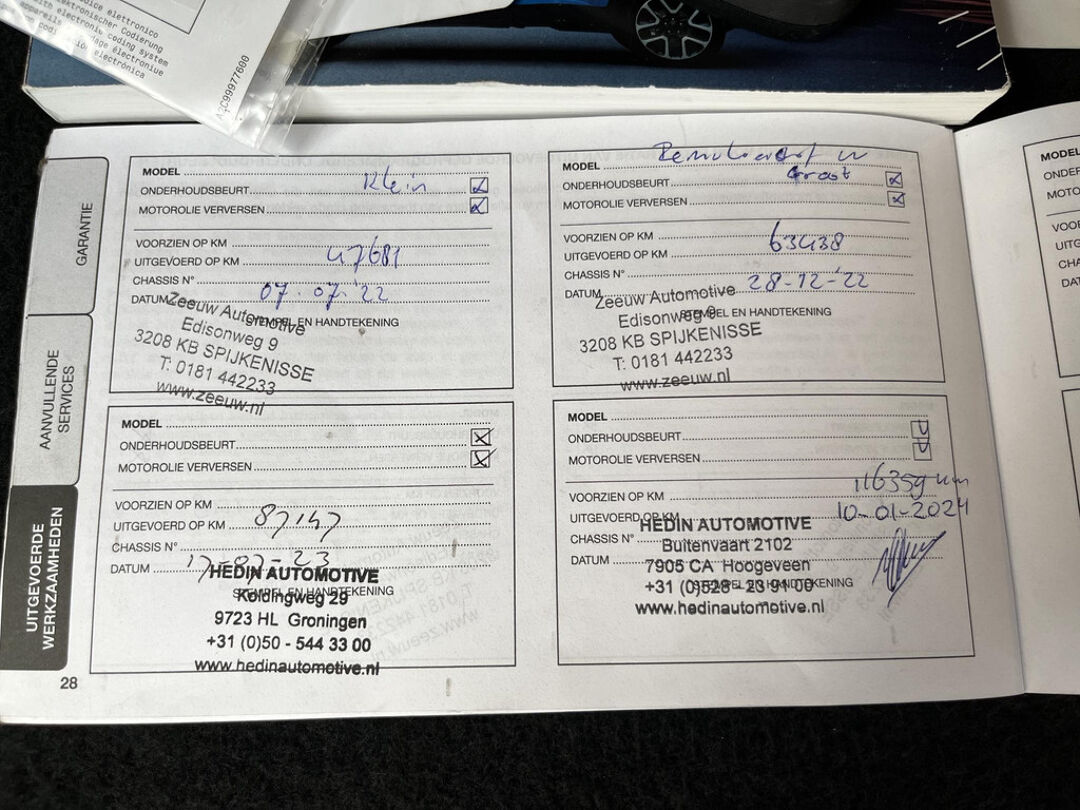 voice elettronico
elektronischer Codierung
with electronic coding system
électronique
electrónica
A2C99977600
GARANTIE
AANVULLENDE SERVICES
UITGEVOERDE WERKZAAMHEDEN
28
MODEL
ONDERHOUDSBEURT Klein
MOTOROLIE VERVERSEN
VOORZIEN OP KM
UITGEVOERD OP KM 47681
CHASSIS N°
DATUM 07-07-'22
STEMPEL EN HANDTEKENING
Zeeuw Automotive
Edisonweg 9
3208 KB SPIJKENISSE
T: 0181 442233
www.zeeuw.nl
MODEL Remvloeistof
ONDERHOUDSBEURT Groot
MOTOROLIE VERVERSEN
VOORZIEN OP KM
UITGEVOERD OP KM 63438
CHASSIS N°
DATUM 28-12-'22
STEMPEL EN HANDTEKENING
Zeeuw Automotive
Edisonweg 9
3208 KB SPIJKENISSE
T: 0181 442233
www.zeeuw.nl
MODEL
ONDERHOUDSBEURT
MOTOROLIE VERVERSEN
VOORZIEN OP KM
UITGEVOERD OP KM 87147
CHASSIS N°
DATUM 17-07-23
STEMPEL EN HANDTEKENING
HEDIN AUTOMOTIVE
Koldingweg 29
9723 HL Groningen
+31 (0)50 - 544 33 00
www.hedinautomotive.nl
MODEL
ONDERHOUDSBEURT
MOTOROLIE VERVERSEN
VOORZIEN OP KM 116359 km
UITGEVOERD OP KM 10-01-2024
CHASSIS N°
DATUM
STEMPEL EN HANDTEKENING
HEDIN AUTOMOTIVE
Buitenvaart 2102
7905 CA Hoogeveen
+31 (0)528 - 23 91 00
www.hedinautomotive.nl
MODEL